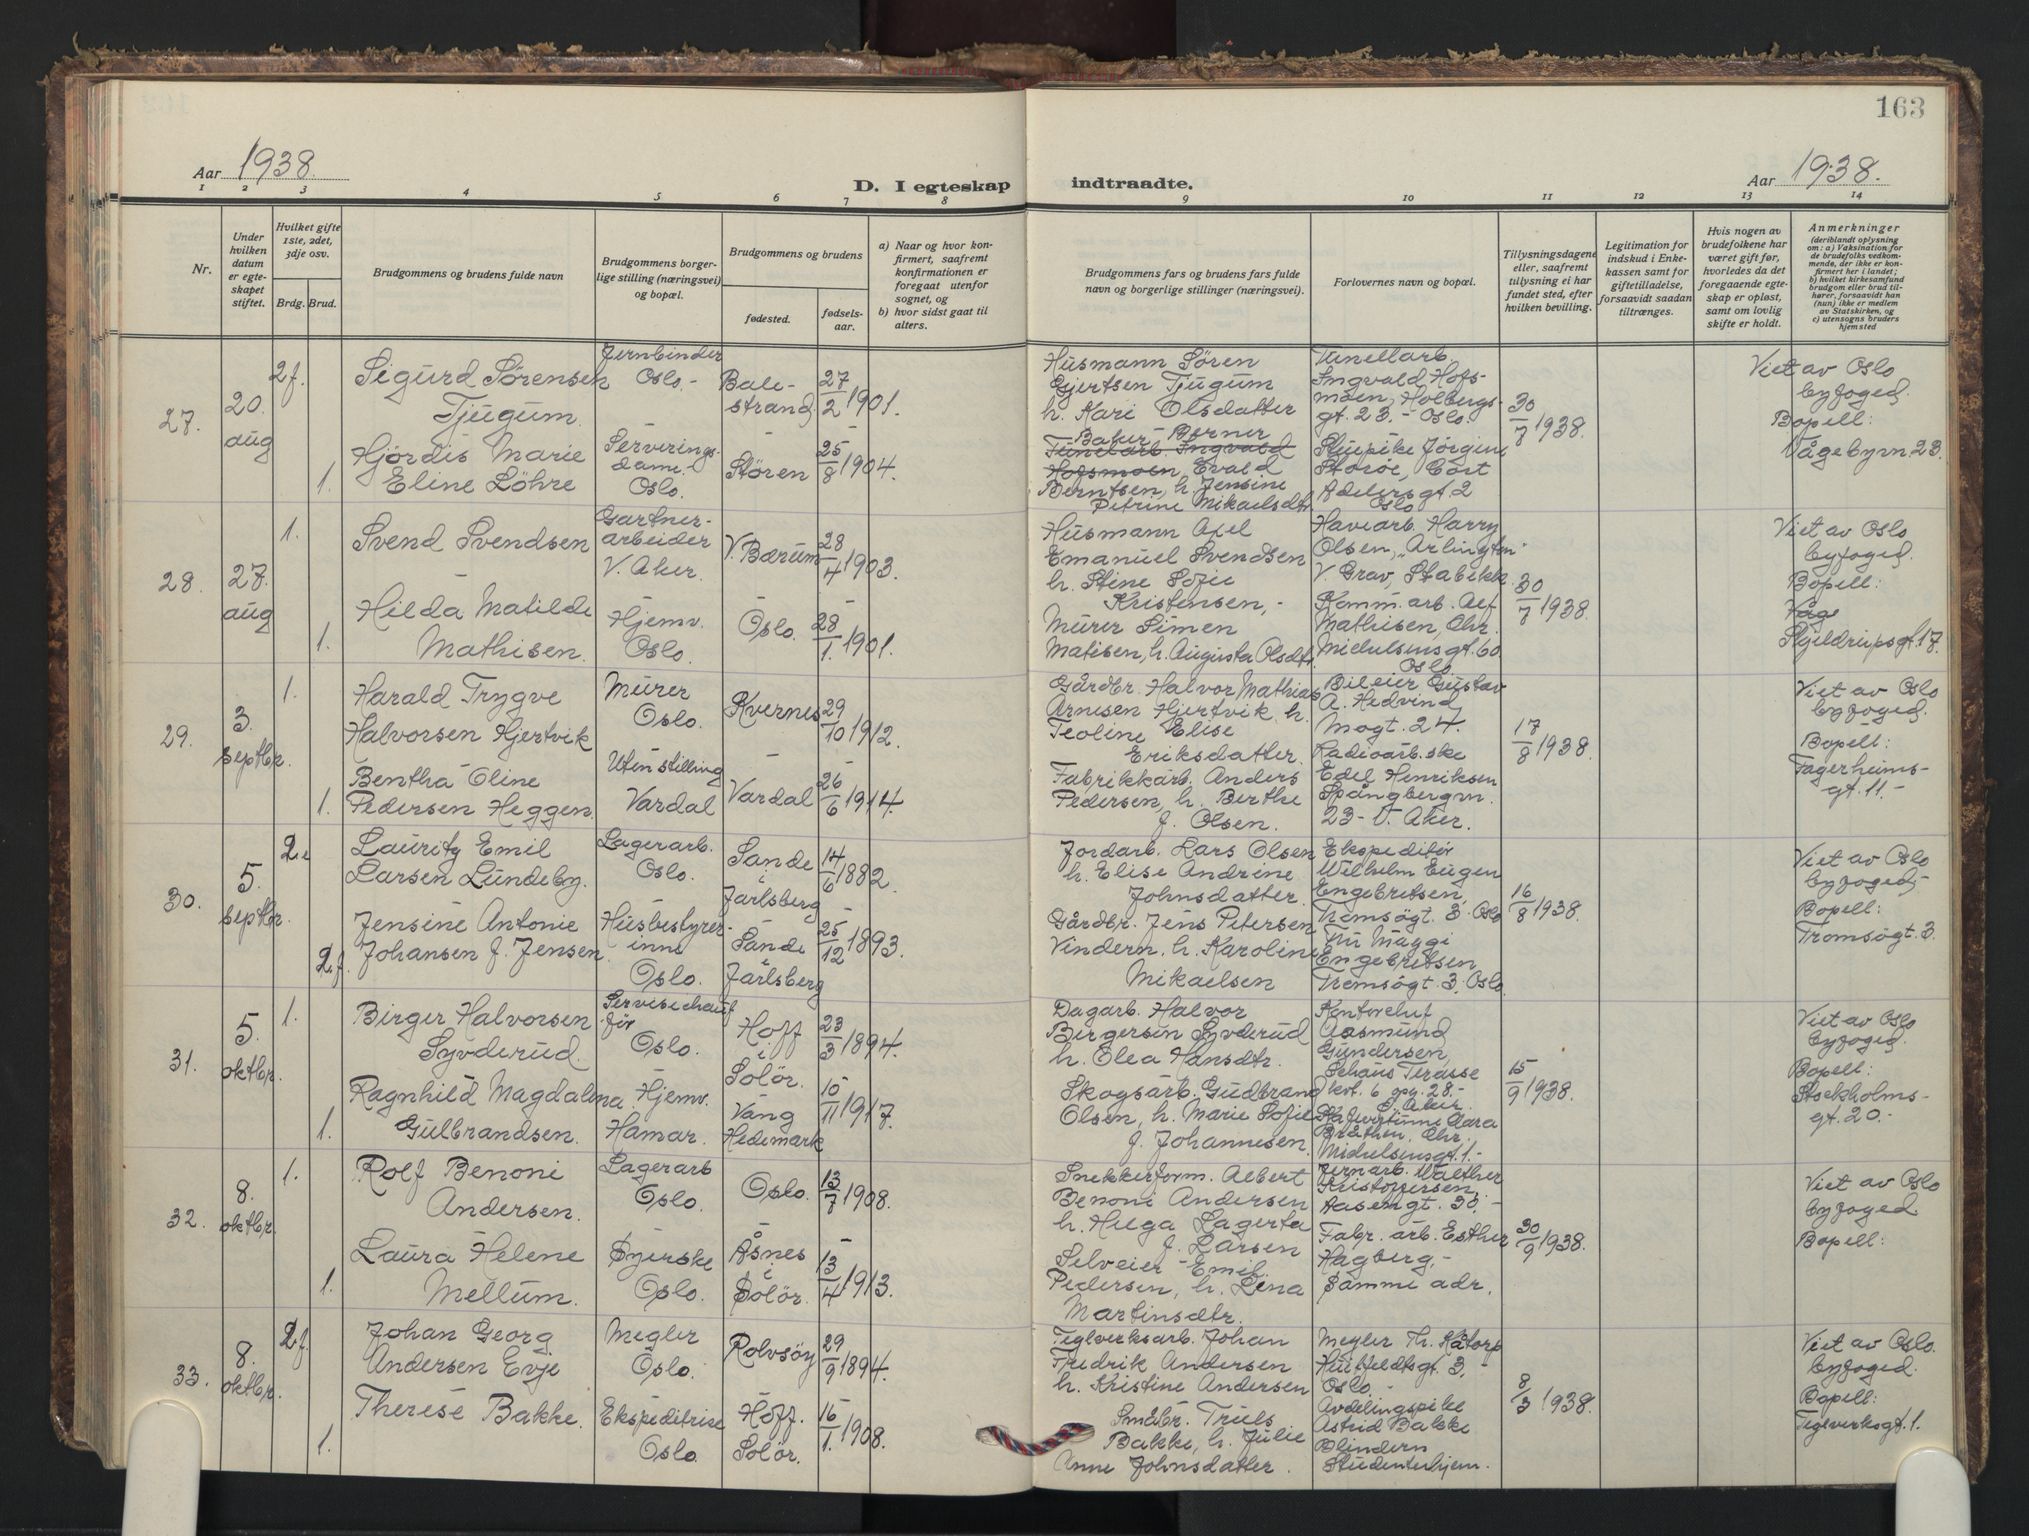 163
Aar 1938.
D. I egteskap indtraadte.
Aar 1938.
1 2 3 4 5 6 7 8 9 10 11 12 13 14
Nr.
Under hvilken datum er egteskapet stiftet.
Hvilket gifte 1ste, 2det, 3dje osv.
Brdg. Brud.
Brudgommens og brudens fulde navn
Brudgommens borgerlige stilling (næringsvei) og bopæl.
Brudgommens og brudens
fødested. fødselsaar.
a) Naar og hvor konfirmert, saafremt konfirmationen er foregaat utenfor sognet, og
b) hvor sidst gaat til alters.
Brudgommens fars og brudens fars fulde navn og borgerlige stillinger (næringsvei).
Forlovernes navn og bopæl.
Tillysningsdagene eller, saafremt tillysning ei har fundet sted, efter hvilken bevilling.
Legitimation for indskud i Enkekassen samt for giftetilladelse, forsaavidt saadan tiltrænges.
Hvis nogen av brudefolkene har været gift før, hvorledes da det foregaaende egteskap er opløst, samt om lovlig skifte er holdt.
Anmerkninger
(deriblandt oplysning om: a) Vaksination for de brudefolks vedkommende, der ikke er konfirmert her i landet; b) hvilket kirkesamfund brudgom eller brud tilhører, forsaavidt han (hun) ikke er medlem av Statskirken, og c) utensogns bruders hjemsted
27. 20. aug
2f.
Sigurd Sørensen
Tjugum.
Jernbinder
Oslo.-
Balestrand
27/2 1901.
Husmann Sören
Gjertsen Tjugum
h. Kari Olsdatter
Tunellarb.
Ingvald Hofsmoen, Holbergsgt. 23.- Oslo.
30/7 1938.
Viet av Oslo
byfoged.
Bopell:
Vågebyrn 23.
1. Hjördis Marie
Eline Löhre
Serveringsdame.
Oslo.
Stören
25/8 1904.
Baker- Berner
Tunellarb Ingvald
Hofsmoen, Evald
Berntsen, h. Jensine
Petrine Mikaelsdtr.
Stuepike Jörgine
Storöe, Cort
Adelersgt. 2
Oslo
28. 27. aug
1. Svend Svendsen
Gartnerarbeider
V. Aker.
V. Bærum
28/4 1903.
Husmann Axel
Emanuel Svendsen
h. Stine Sofie
Kristensen,-
Havearb. Harry
Olsen, "Arlington"
V. Grav, Stabekk.
30/7 1938.
Viet av Oslo
byfoged.
Bopell:
Våge
Skjeldrupsgt. 17.
1. Hilda Matilde
Mathisen.
Hjemv.
Oslo.
Oslo.
28/1. 1901.
Murer Simen
Matisen, h. Augusta Olsdtr.
Komm. arb. Alf
Mathisen, Chr.
Michelsensgt. 60
Oslo
29. 3. septbr.
1. Harald Trygve
Halvorsen Hjertvik
Murer
Oslo.
Kvernes
29/10 1912.
Gårdbr. Halvor Mathias
Arnesen Hjertvik h.
Teoline Elise
Eriksdatter.
Bileier Gustav
A. Hedvind
Mogt. 24.
17/8 1938.
Viet av Oslo
byfoged.
Bopell:
Fagerheimsgt. 11.-
1. Bentha Oline
Pedersen Heggen.
Uten stilling
Vardal
Vardal
26/6 1914.
Fabrikkarb. Anders
Pedersen, h. Berthe
f. Olsen.
Radioarb.ske
Edel Henriksen
Spångbergvn.
23- V. Aker.
30. 5. septbr.
2.e Lauritz Emil
Larsen Lundeby.
Lagerarb.
Oslo.
Sande
i
Jarlsberg
14/6 1882.
Jordarb. Lars Olsen
h. Elise Andrine
Johnsdatter.
Ekspeditör
Wilhelm Eugen
Engebretsen,
Tromsögt. 3. Oslo
16/8 1938.
Viet av Oslo
byfoged,
Bopell:
Tromsögt. 3.
2.f. Jensine Antonie
Johansen f. Jensen.
Husbestyrerinne
Oslo.
Sande
i
Jarlsberg
25/12 1893.
Gårdbr. Jens Petersen
Vindern. h. Karoline
Mikaelsen
Fru Maggi
Engebretsen
Tromsögt. 3, Oslo.
31. 5. oktbr.
1. Birger Halvorsen
Syvderud.
Servisechaufför
Oslo.
Hoff
i
Solör.
23/3 1894.
Dagarb. Halvor
Birgersen Syvderud
h. Olea Hansdtr.
Kontorchef
Aasmund
Gundersen,
Sehaus Terasse
kvt. 6 opg. 28.-
V. Aker.
15/9 1938.
Viet av Oslo
byfoged.
Bopell:
Stockholmsgt. 20.-
1. Ragnhild Magdalena
Gulbrandsen.
Hjemv.
Hamar.
Vang
Hedemark
10/11 1917.
Skogsarb. Gudbrand
Olsen, h. Marie Sofie
f. Johannesen.
Kafevertinne Clara
Bråthen, Chr.
Michelsensgt. 1.-
32. 8. oktbr.
1. Rolf Benoni
Andersen.
Lagerarb
Oslo.
Oslo.
13/7 1908.
Snekkerform. Albert
Benoni Andersen
h. Huga Lagerta
f. Larsen
Jernarb. Walther
Kristoffersen,
Aasengt. 30.-
30/9 1938.
Viet av Oslo
byfoged
Bopell:
1. Laura Helene
Mellum.
Syerske
Oslo.
Åsnes
i
Solör.
13/4 1913.
Selveier Emil
Pedersen, h. Lina
Martinsdtr.
Fabr. arb. Esther
Hagberg,-
Samme adr.
33. 8. oktbr.
2.f. Johan Georg
Andersen Evje
Megler
Oslo.
Rolvsöy
29/9 1894.
Teglverksarb. Johan
Fredrik Andersen
h. Kristine Andersen
Megler Th. Kåtorp
Huitfeldtsgt. 3,
Oslo.-
8/3 1938.
Viet av Oslo.
byfoged.
Bopell:
Teglverksgt. 1.
1. Therese Bakke.
Ekspeditrise
Oslo.
Hoff.
Solör.
16/1. 1908.
Småbr. Truls
Bakke, h. Julie
Anne Johnsdatter.
Avdelingspike
Astrid Bakke
Blindern
Studenterhjem.